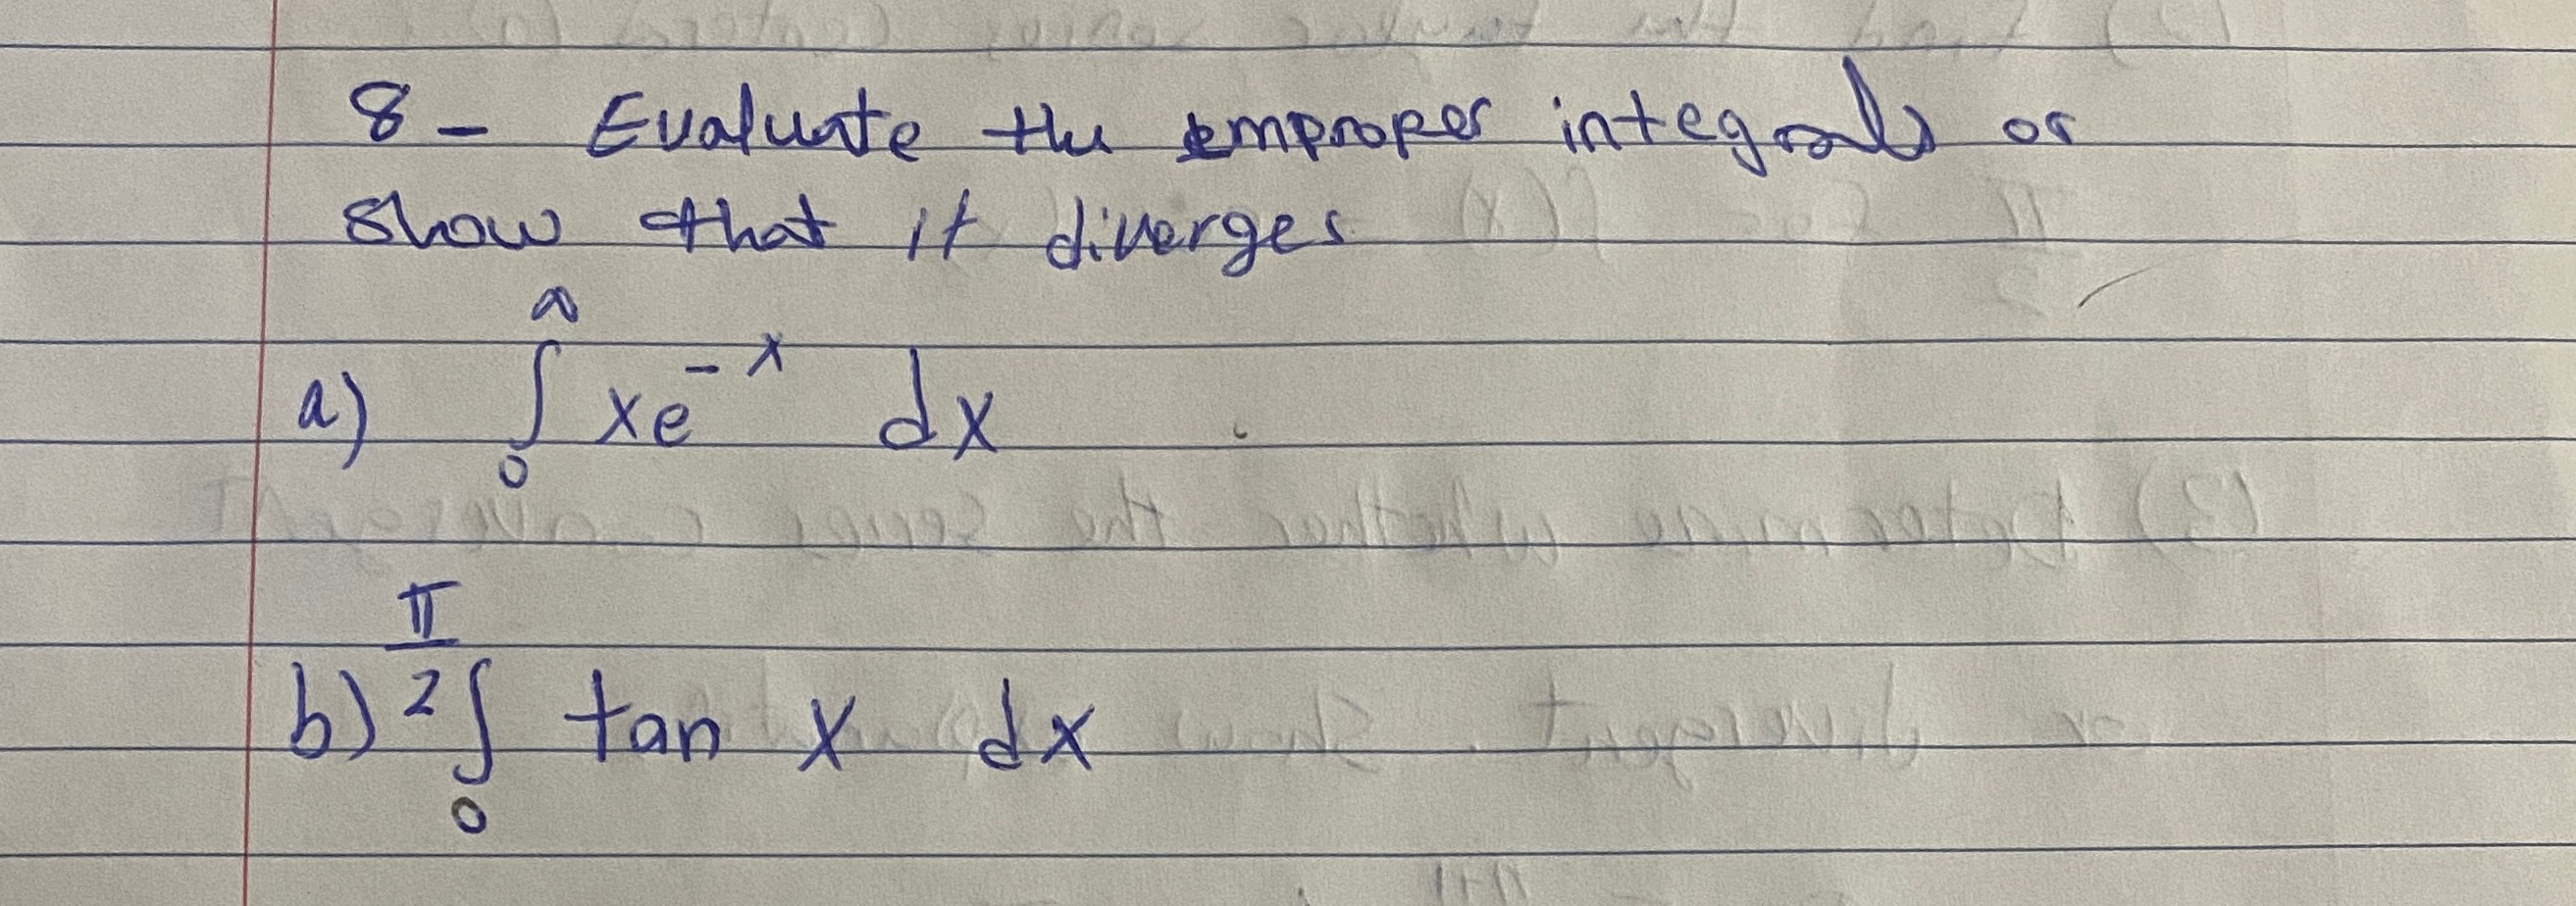 8- Evaluate the improper integrals or
show that it diverges
a) ∫₀^∞ xe^{-x} dx
b) ∫₀^{π/2} tan x dx